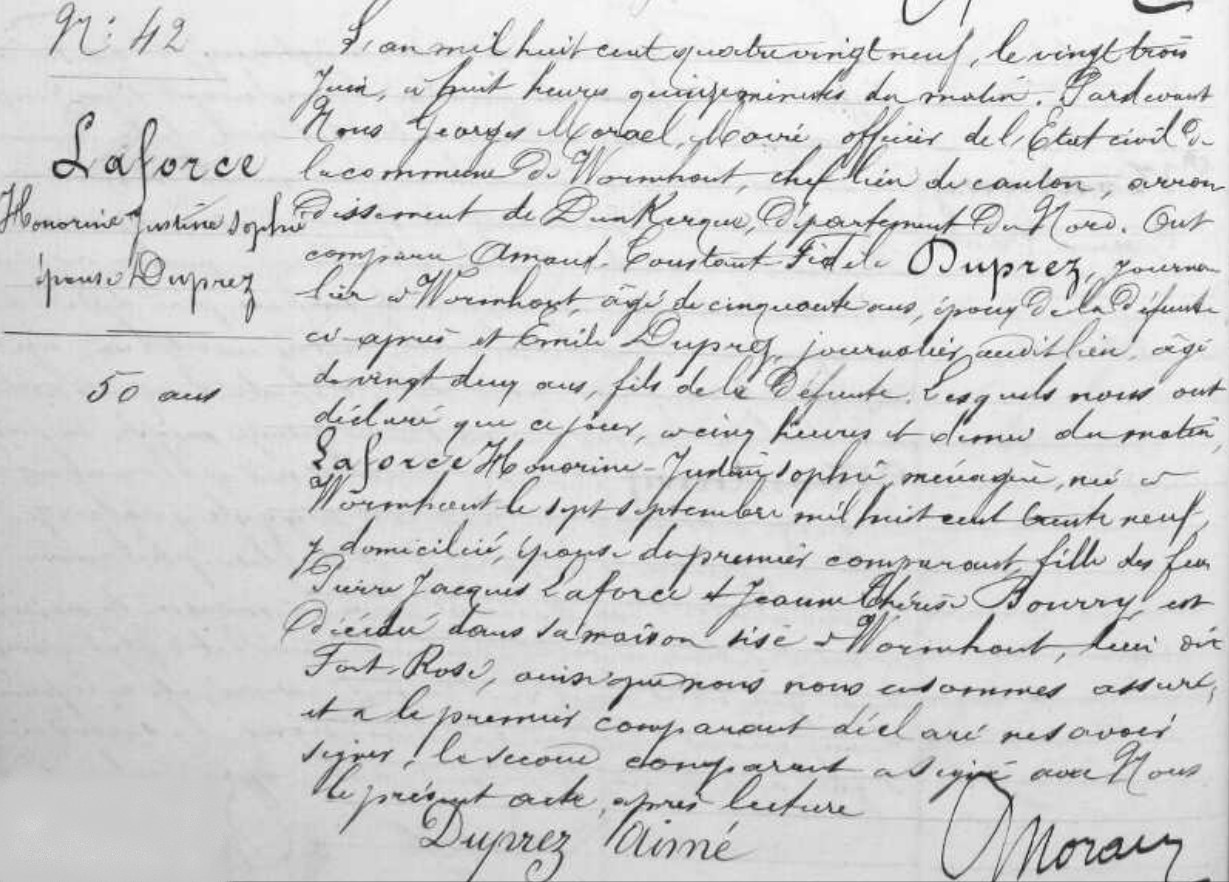 N: 42
Laforce
Honorine Justine Sophie
épouse Duprez
50 ans
L'an mil huit cent quatre vingt neuf, le vingt trois
Juin, à huit heures quinze minutes du matin. Pardevant
Nous Georges Morael, Maire, officier de l'Etat civil de
la commune de Wormhout, chef lieu de canton, arron
dissement de Dunkerque, département du Nord. Ont
comparu Amand Constant Fidele Duprez, journa
lier à Wormhout, âgé de cinquante ans, époux de la défunte
ci après et Emile Duprez, journalier audit lieu, âgé
de vingt deux ans, fils de la défunte. Lesquels nous ont
déclaré que ce jour, à cinq heures et demie du matin,
Laforce Honorine-Justine Sophie, ménagère, née à
Wormhout le sept septembre mil huit cent trente neuf,
y domiciliée, épouse du premier comparant, fille des feus
Pierre Jacques Laforce et Jeanne Thérèse Bourry, est
décédée dans sa maison sise à Wormhout, lieu dit
Fort Rose, ainsi que nous nous en sommes assuré,
et a le premier comparant déclaré ne savoir
signer; le second comparant a signé avec Nous
le présent acte, après lecture
Duprez Aimé